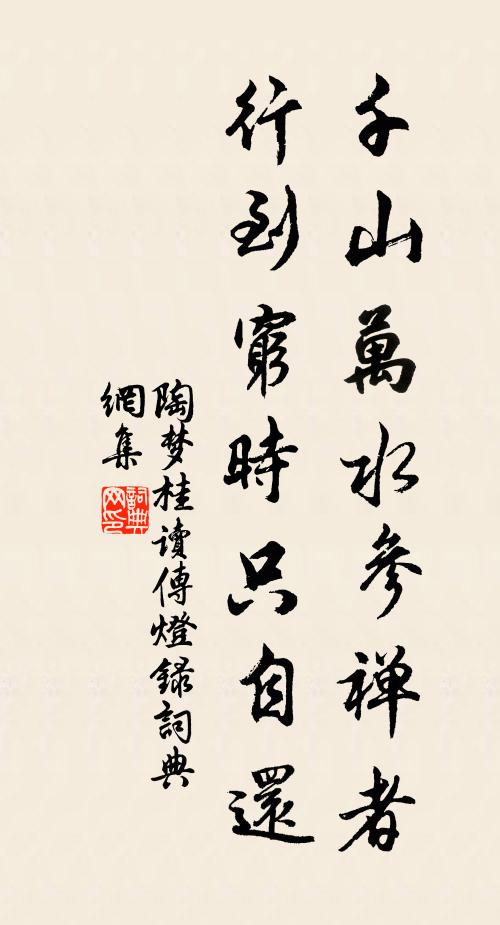 千山萬水參禅者
行到窮時只自還
陶梦桂讀傳燈錄詞典
網集
詞典網印